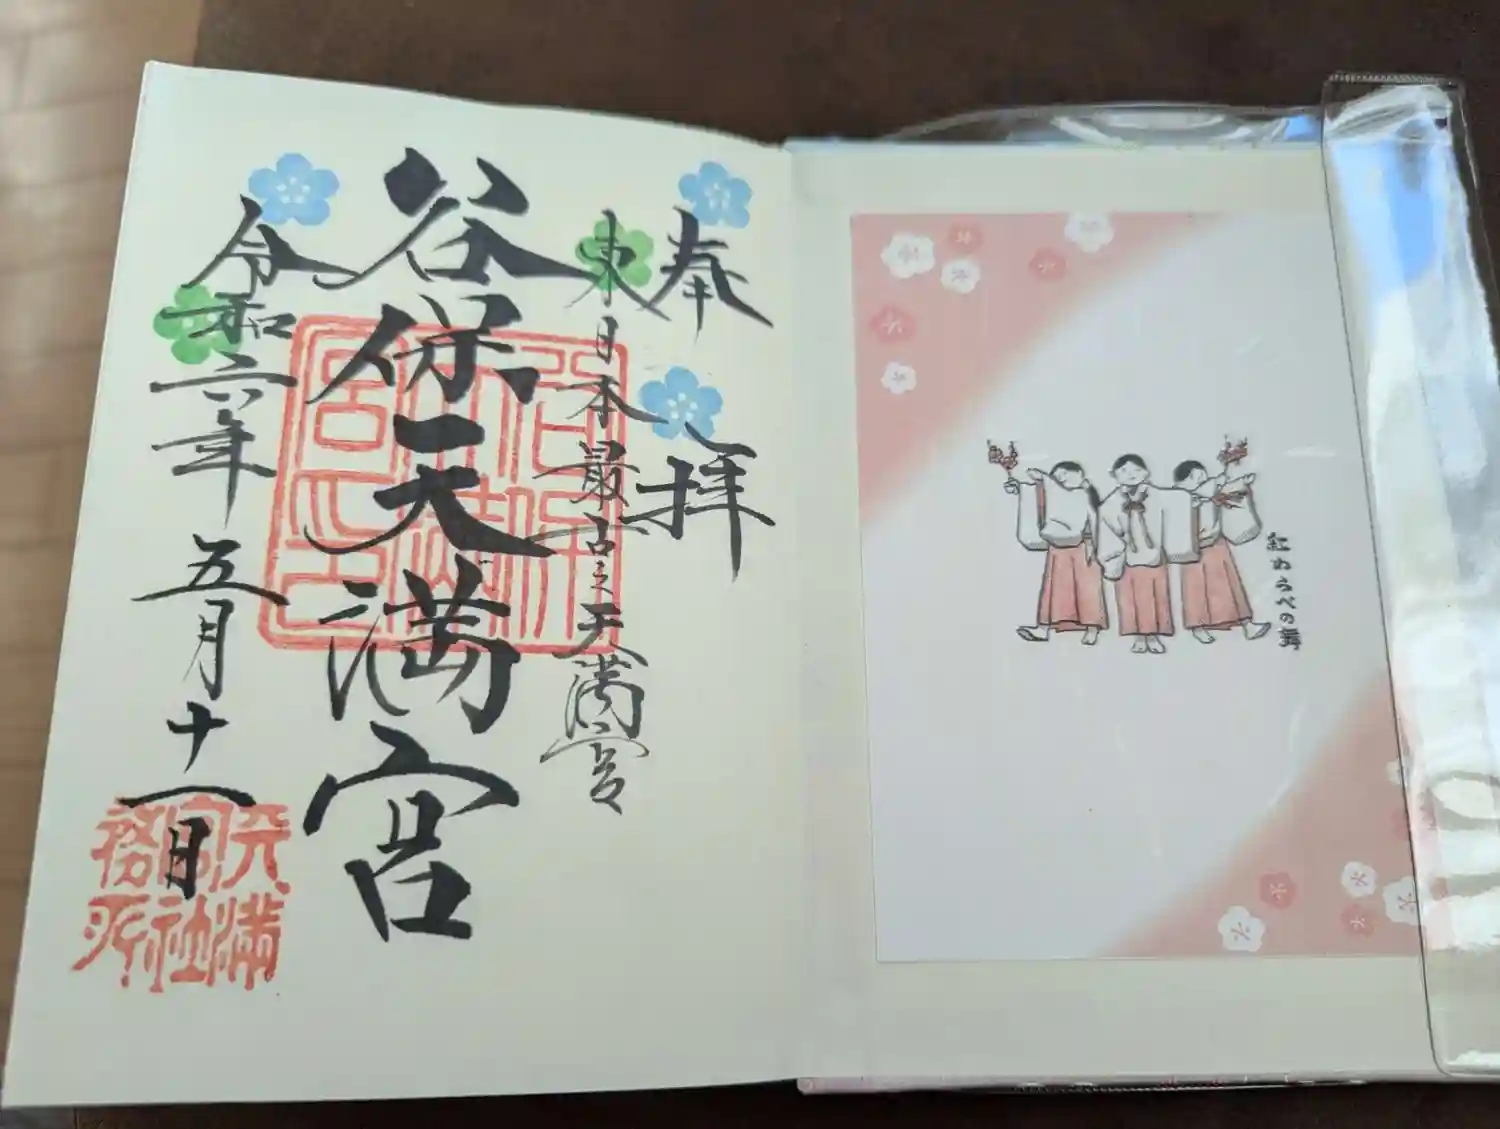 紅わらべの舞
奉拝
東日本最古之天満宮
谷保天満宮
令和六年五月十一日
谷保
天満
宮之印
天満
宮社
務所